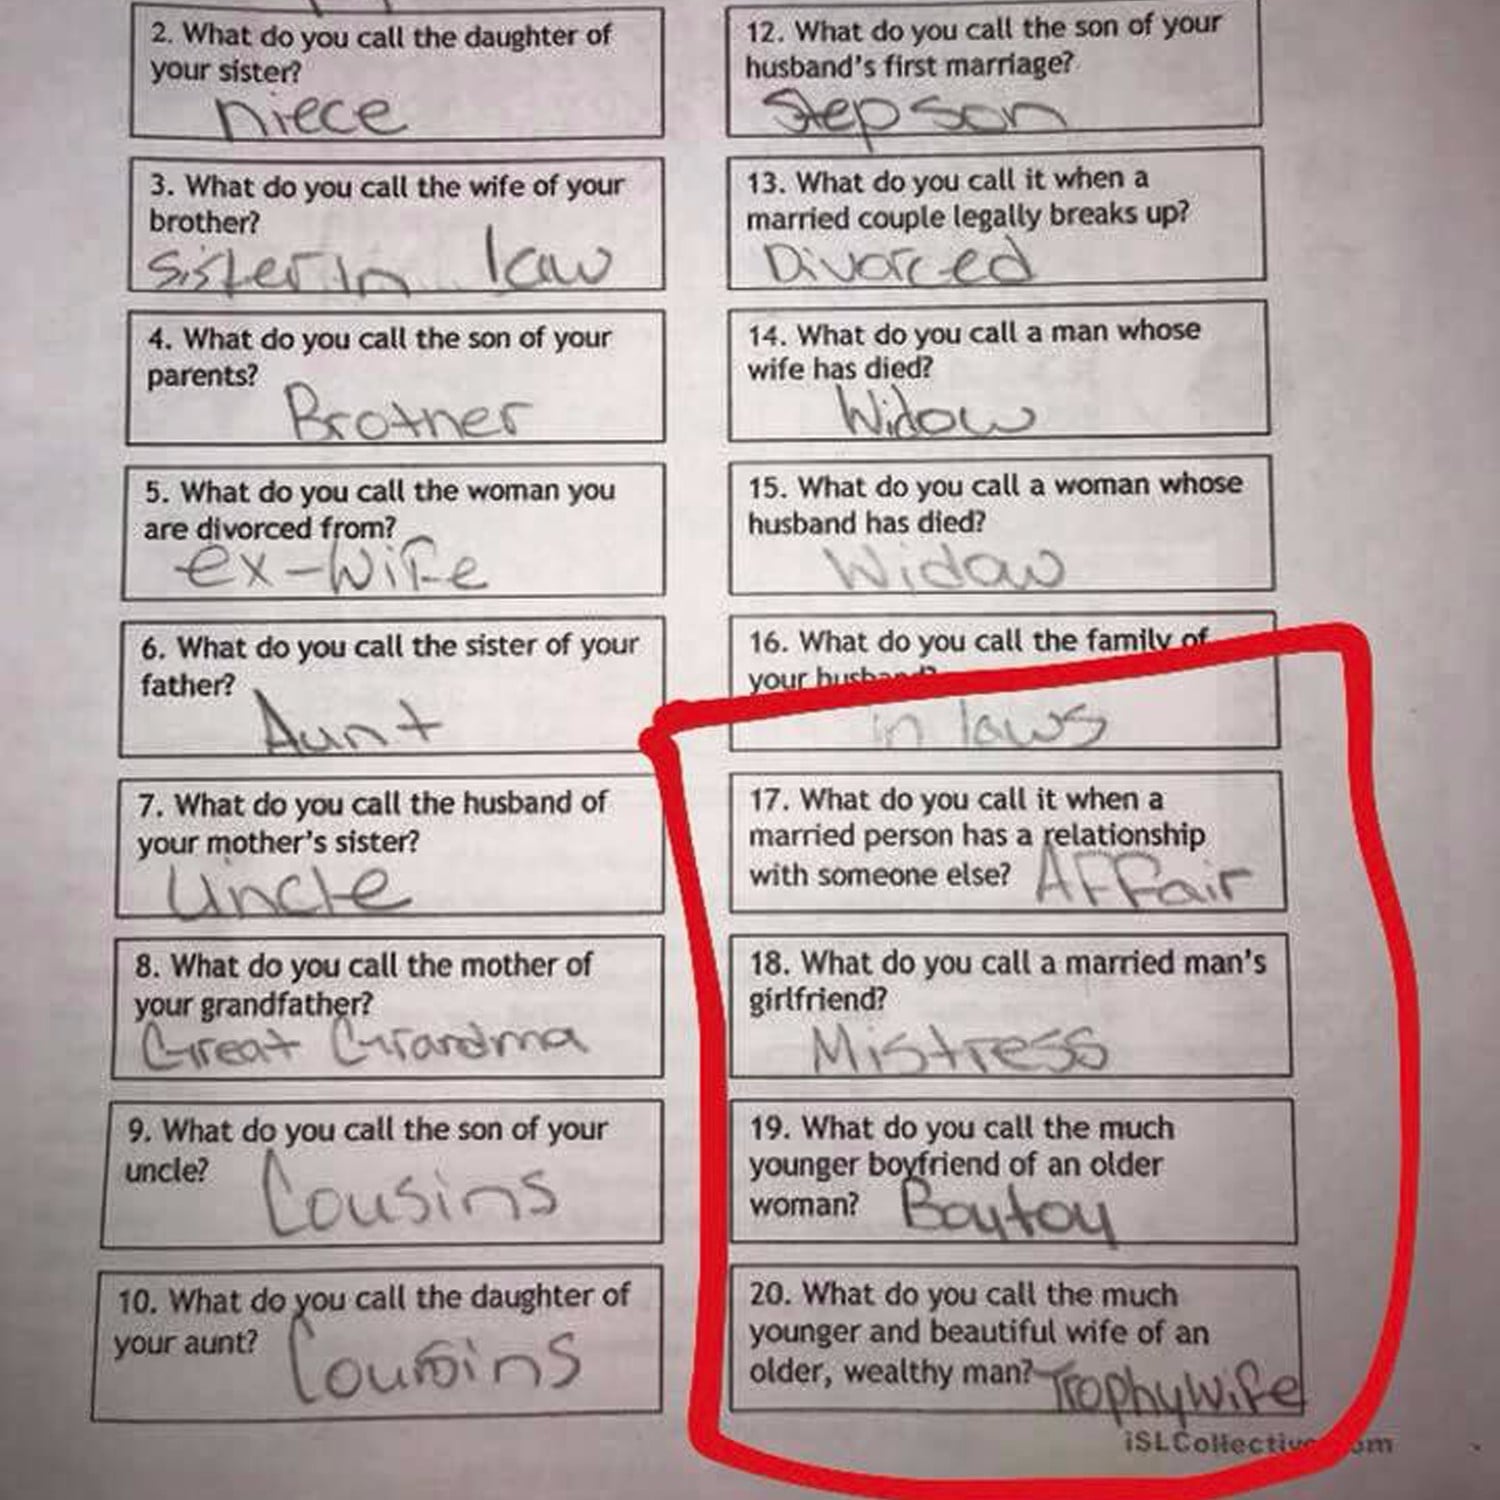 2. What do you call the daughter of
your sister?
niece
3. What do you call the wife of your
brother?
Sister In law
4. What do you call the son of your
parents?
Brother
5. What do you call the woman you
are divorced from?
ex-wife
6. What do you call the sister of your
father?
Aunt
7. What do you call the husband of
your mother's sister?
Uncle
8. What do you call the mother of
your grandfather?
Great Grandma
9. What do you call the son of your
uncle?
Cousins
10. What do you call the daughter of
your aunt?
Cousins
12. What do you call the son of your
husband's first marriage?
Step son
13. What do you call it when a
married couple legally breaks up?
Divorced
14. What do you call a man whose
wife has died?
Widow
15. What do you call a woman whose
husband has died?
Widow
16. What do you call the family of
your husband?
in laws
17. What do you call it when a
married person has a relationship
with someone else? AFFair
18. What do you call a married man's
girlfriend?
Mistress
19. What do you call the much
younger boyfriend of an older
woman? Boytoy
20. What do you call the much
younger and beautiful wife of an
older, wealthy man? Trophy Wife
iSLCollective.com